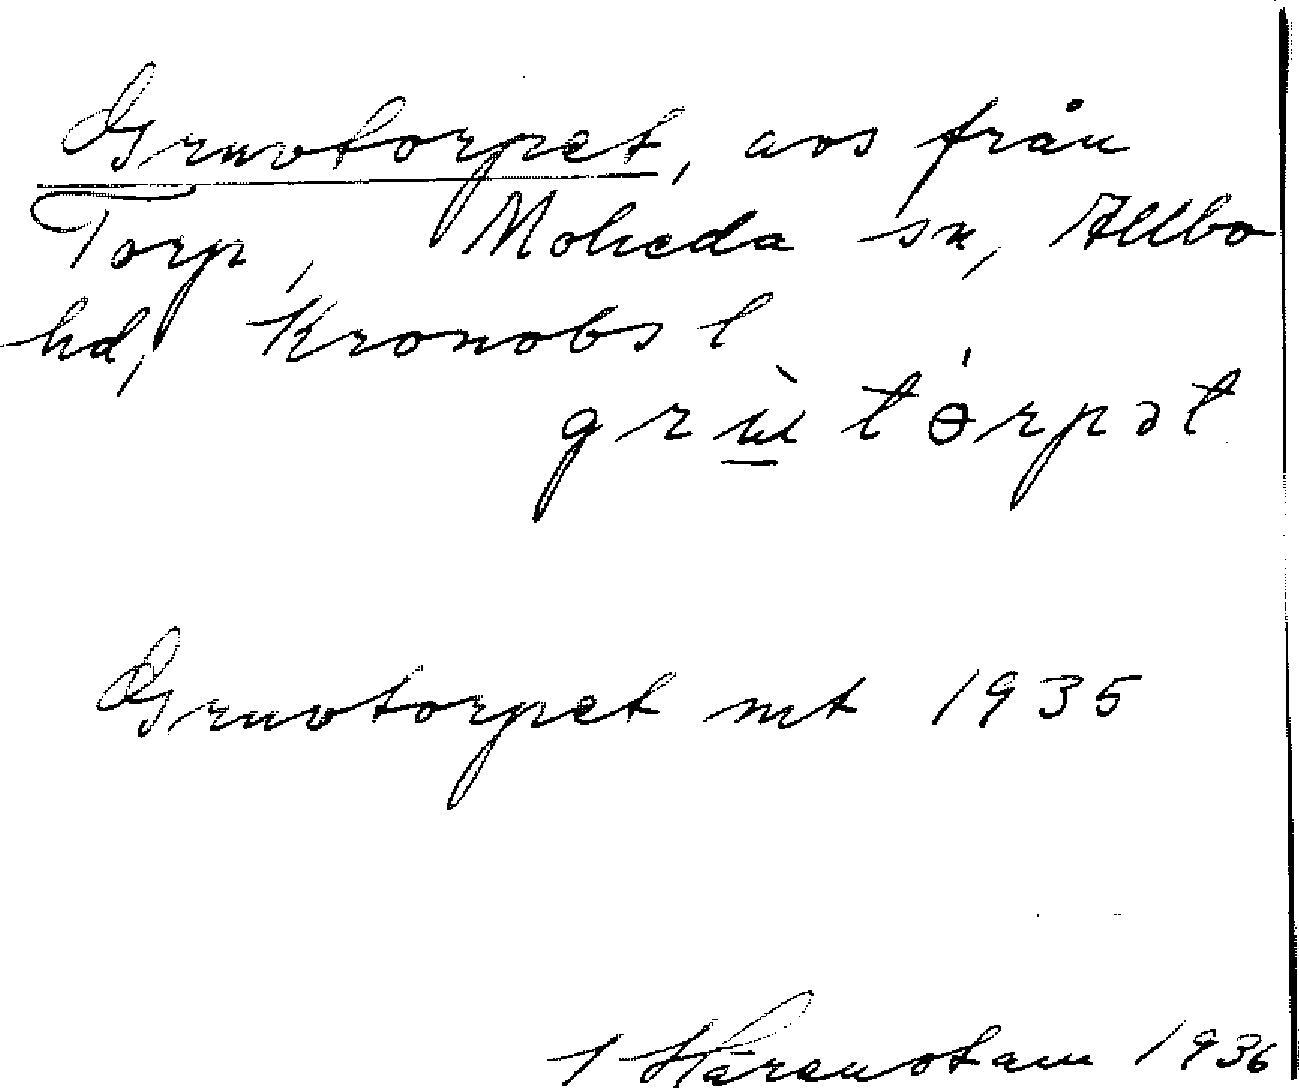 Gruvtorpet, avs från
Torp, Moheda sn, Allbo
hd, Kronobs l
grùtɵ́rpət
Gruvtorpet mt 1935
1936